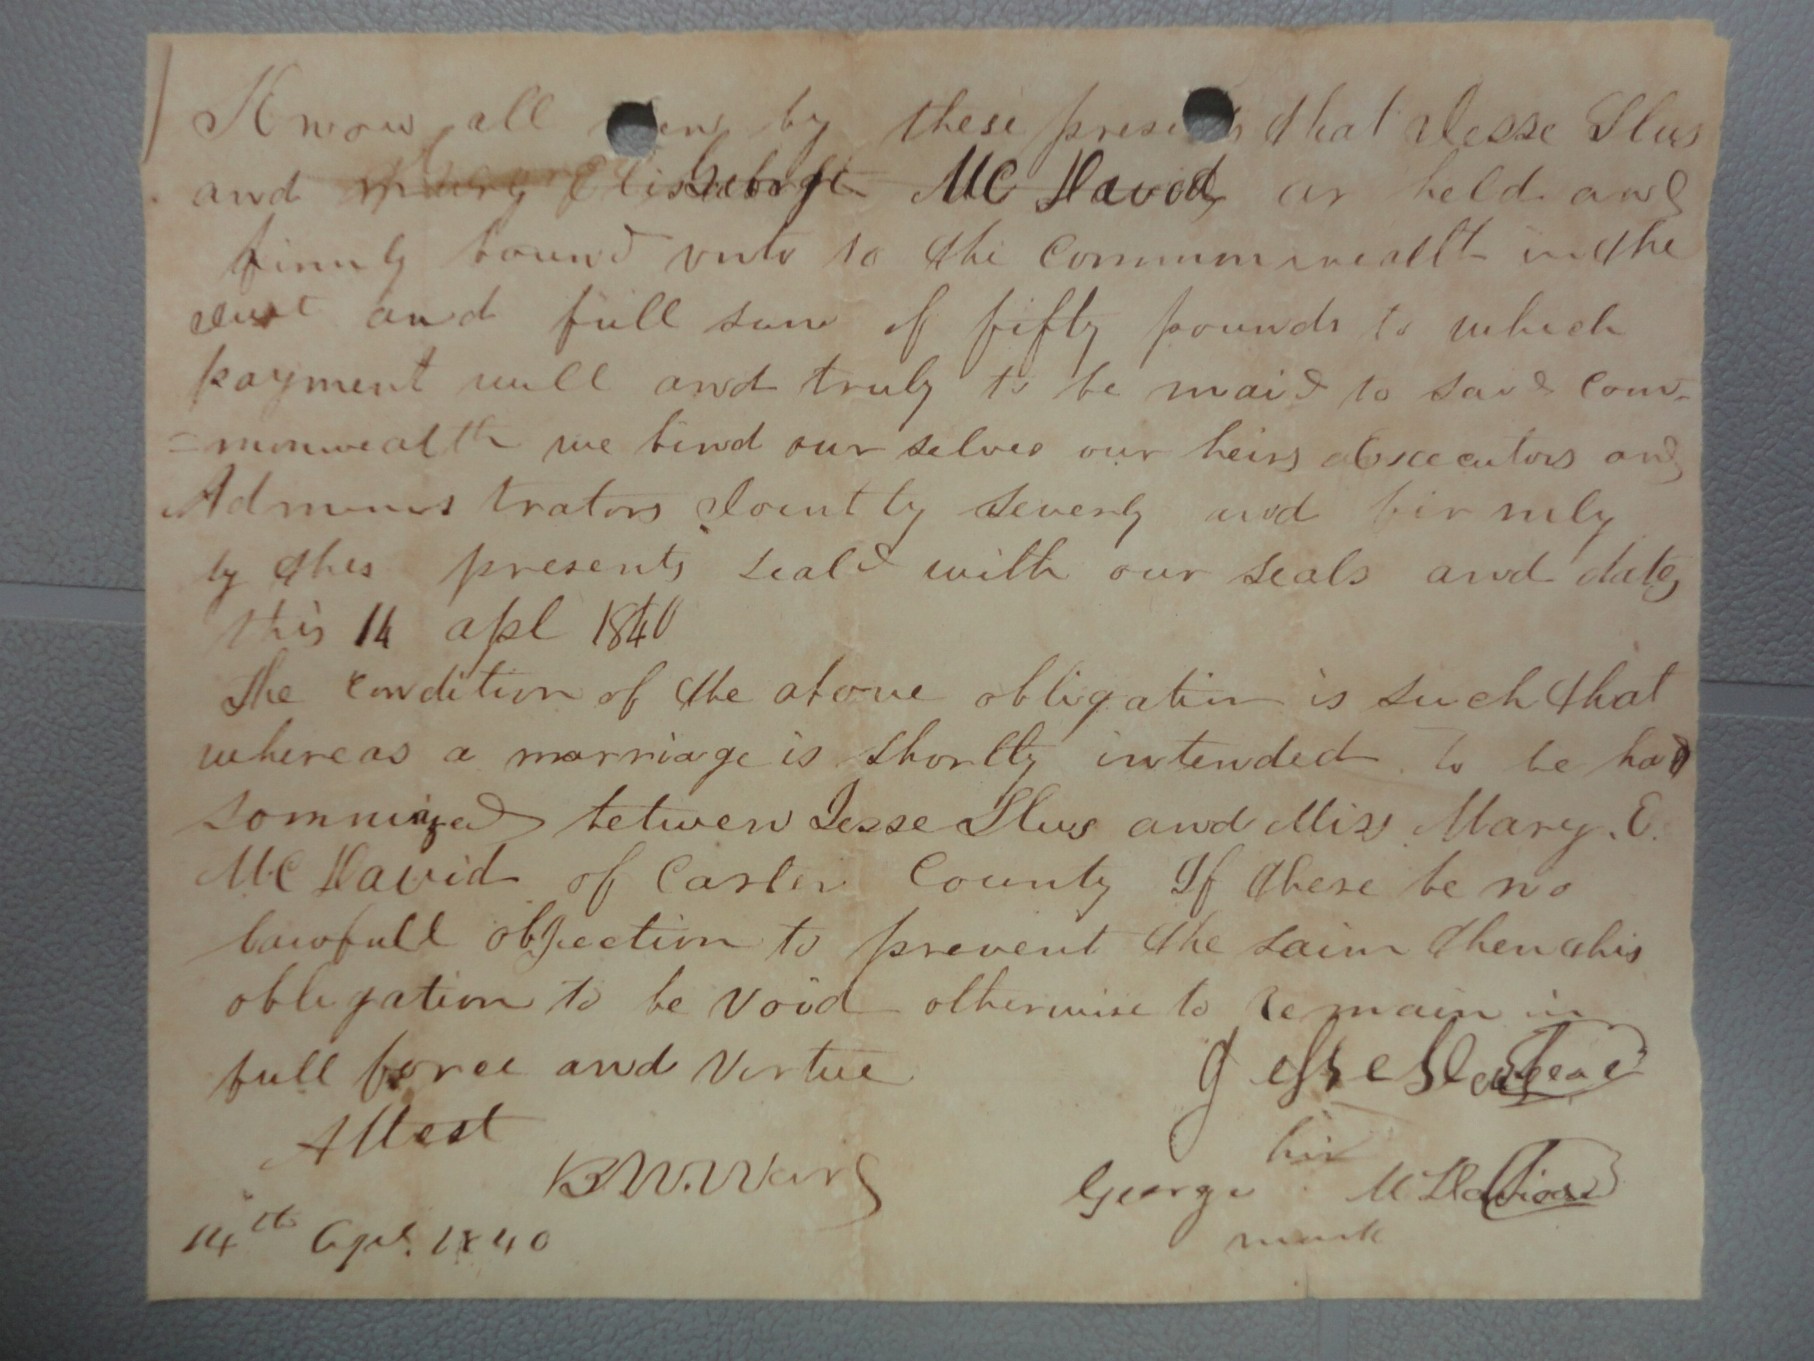 Know all men by these presents that Jesse Slus
and Mc David ar held and
firmly bound unto to the Commonwealth in the
Just and full sum of fifty pounds to which
payment will and truly to be maid to said Com-
=monwealth we bind our selves our heirs Execcutors and
Administrators Jointly severly and firmly
by thes presents seald with our seals and date
this 14 apl 1840
The condition of the above obligation is such that
whereas a marriage is shortly intended to be had
between Jesse Slus and Miss Mary. E.
Mc David of Carter County If there be no
lawfull objection to prevent the saim then this
obligation to be void otherwise to remain in
full force and virtue
Jesse Seal
Attest
his
B W. Ward
George McDavid
mark
14th Apl. 1840